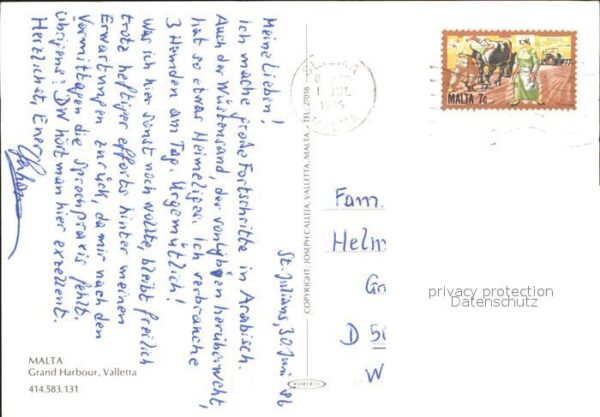 St. Julians, 30 Juni 86
Meine Lieben!
Ich mache große Fortschritte in Arabisch.
Auch der Wüstensand, der von Lybien herüberweht,
hat so etwas Heimeliges. Ich verbrauche
3 Hemden am Tag. Urgemütlich!
Was ich hier sonst noch wollte, bleibt freilich
trotz heftiger efforts hinter meinen
Erwartungen zurück, da mir nach den
Vormittagen die Sprechpraxis fehlt.
Übrigens: DW hört man hier exzellent.
Herzlichst, Euer
MALTA
Grand Harbour, Valletta
414.583.131
COPYRIGHT: JOSEPH CALLEJA, VALLETTA, MALTA. - TEL. 27018
MALTA 7c
Fam.
Helm
D 50
W
privacy protection
Datenschutz